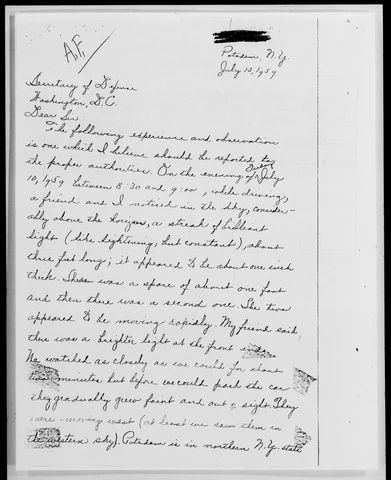 A.F.
Potsdam, N.Y.
July 13, 1959
Secretary of Defense
Washington, D.C.
Dear Sir:
The following experience and observation
is one which I believe should be reported to
the proper authorities. On the evening of Friday July
10, 1959 between 8:30 and 9:00, while driving,
a friend and I noticed in the sky, consider-
ably above the horizon, a streak of brilliant
light (like lightning, but constant), about
three feet long; it appeared to be about one inch
thick. There was a space of about one foot
and then there was a second one. The two
appeared to be moving rapidly. My friend said
there was a brighter light at the front
We watched as closely as we could for about
minutes but before we could park the car
they gradually grew faint and out of sight. They
were moving west (at least we saw them in
the western sky). Potsdam is in northern N.Y. state